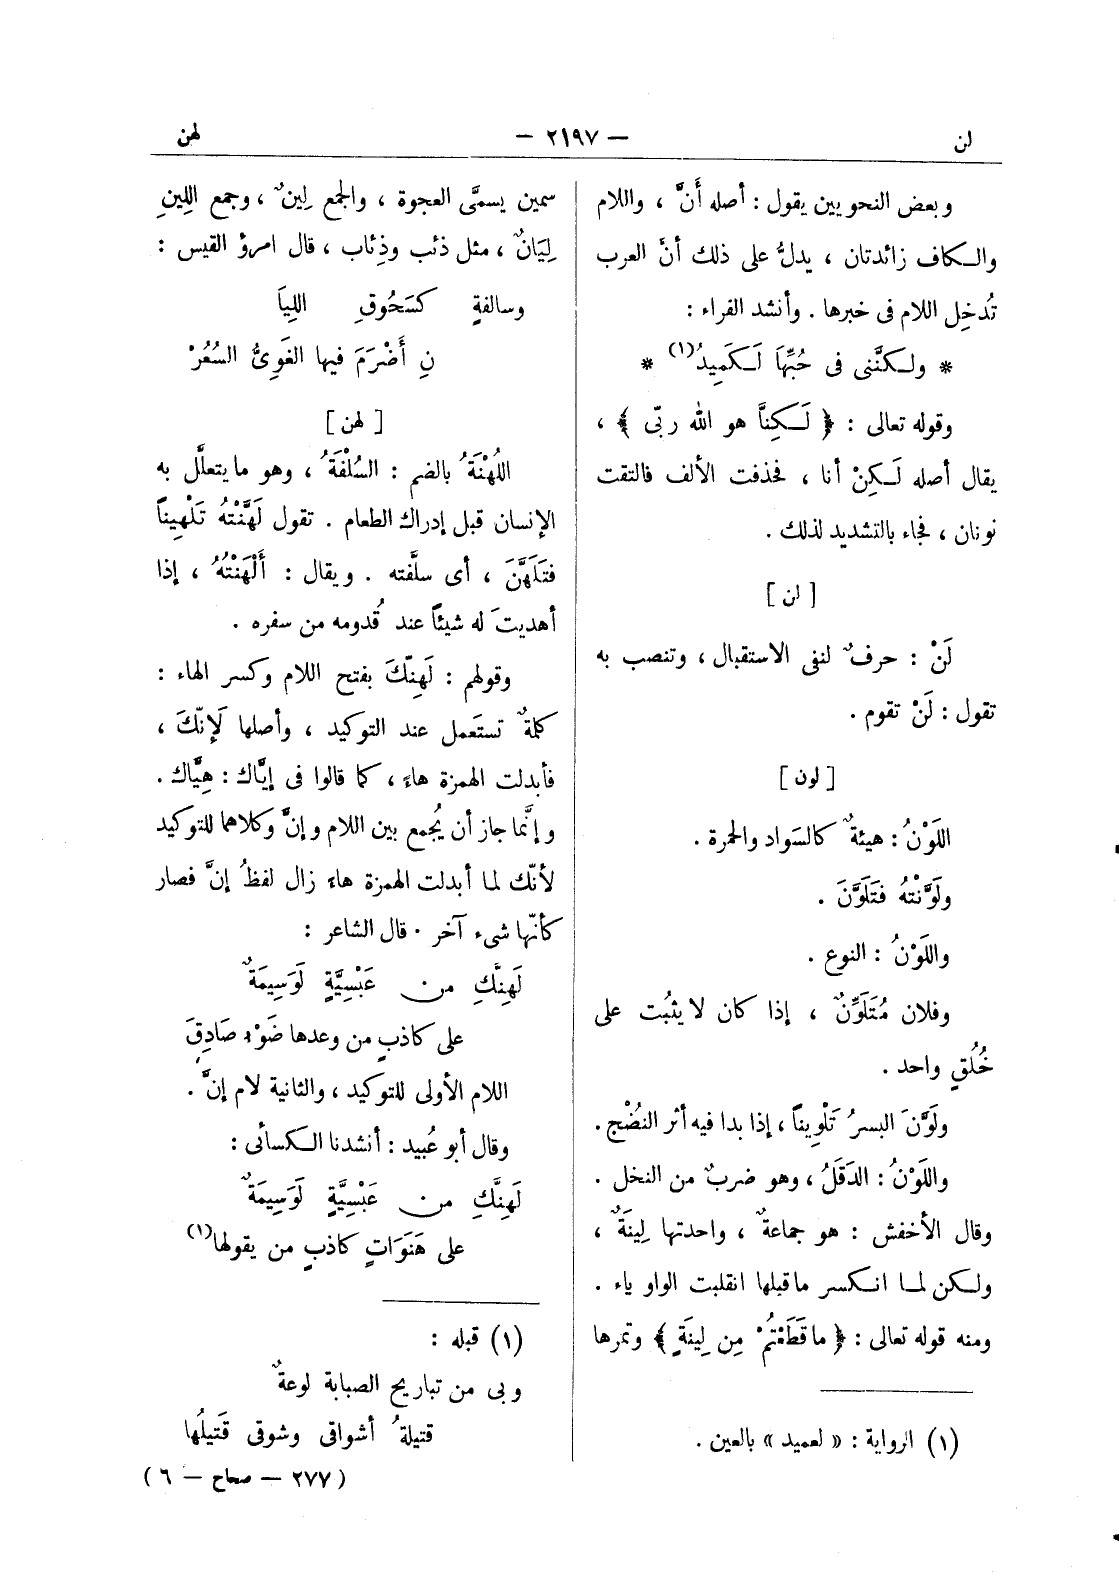 لن — ٢١٩٧ — لهن
وبعض النحويين يقول : أصله أَنَّ ، واللام
والكاف زائدتان ، يدلُّ على ذلك أنَّ العرب
تُدخِل اللام فى خبرها . وأنشد الفراء :
* ولكنَّنى فى حُبِّهَا لَكَمِيدُ (١) *
وقوله تعالى : ﴿ لَكِنَّا هو الله ربّى ﴾ ،
يقال أصله لَكِنْ أنا ، فحُذفت الألف فالتقت
نونان ، فجاء بالتشديد لذلك .
[ لن ]
لَنْ : حرفٌ لنفى الاستقبال ، وتنصب به
تقول : لَنْ تقوم .
[ لون ]
اللَوْنُ : هيئةٌ كالسَواد والحمرة .
ولَوَّنْتُهُ فَتَلَوَّنَ .
واللَوْنُ : النوع .
وفلان مُتَلَوِّنٌ ، إذا كان لا يثبُت على
خُلُقٍ واحد .
ولَوَّنَ البسرُ تَلْوِيناً ، إذا بدا فيه أثر النُضْج .
واللَوْنُ : الدَقَلُ ، وهو ضربٌ من النخل .
وقال الأخفش : هو جماعةٌ ، واحدتها لِينَةٌ ،
ولكن لما انكسر ما قبلها انقلبت الواو ياء .
ومنه قوله تعالى : ﴿ ما قَطَعْتُمْ مِن لِينَةٍ ﴾ وتمرها
(١) الرواية : « لعميد » بالعين .
سمين يسمَّى العجوة ، والجمع لِينٌ ، وجمع اللِينِ
لِيَانٌ ، مثل ذئب وذِئاب ، قال امرؤ القيس :
وسالفةٍ كسَحُوقِ اللِيَا
نِ أَضْرَمَ فيها الغَوِىُّ السُعُرْ
[ لهن ]
اللُهْنَةُ بالضم : السُلْفَةُ ، وهو ما يتعلَّل به
الإنسان قبل إدراك الطعام . تقول لَهَّنْتُهُ تَلْهِيناً
فتَلَهَّنَ ، أى سلَّفته . ويقال : أَلْهَنْتُهُ ، إذا
أهديتَ له شيئاً عند قُدومه من سفره .
وقولهم : لَهِنَّكَ بفتح اللام وكسر الهاء :
كلمةٌ تستَعمل عند التوكيد ، وأصلها لَإِنّكَ ،
فأبدلت الهمزة هاءً ، كما قالوا فى إيَّاك : هِيَّاك .
وإنَّما جاز أن يُجمع بين اللام وإنَّ وكلاهما للتوكيد
لأنّك لما أبدلت الهمزة هاء زال لفظُ إنَّ فصار
كأنّها شىء آخر . قال الشاعر :
لَهِنَّكِ من عَبْسِيَّةٍ لَوَسِيمَةٌ
على كاذبٍ من وعدها ضَوْءُ صَادِقِ
اللام الأولى للتوكيد ، والثانية لام إنَّ .
وقال أبو عُبيد : أنشدنا الكسائى :
لَهِنَّكِ من عَبْسِيَّةٍ لَوَسِيمَةٌ
على هَنَوَاتٍ كاذبٍ من يقولها (١)
(١) قبله :
وبى من تباريح الصبابة لوعةٌ
قتيلةُ أشواقى وشوقى قَتيلُها
( ٢٧٧ — صحاح — ٦ )